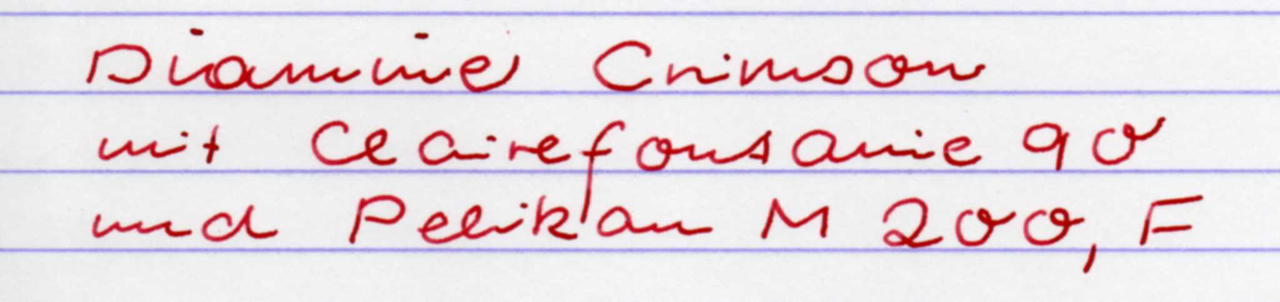 Diamine Crimson
mit Clairefontaine 90
und Pelikan M 200, F